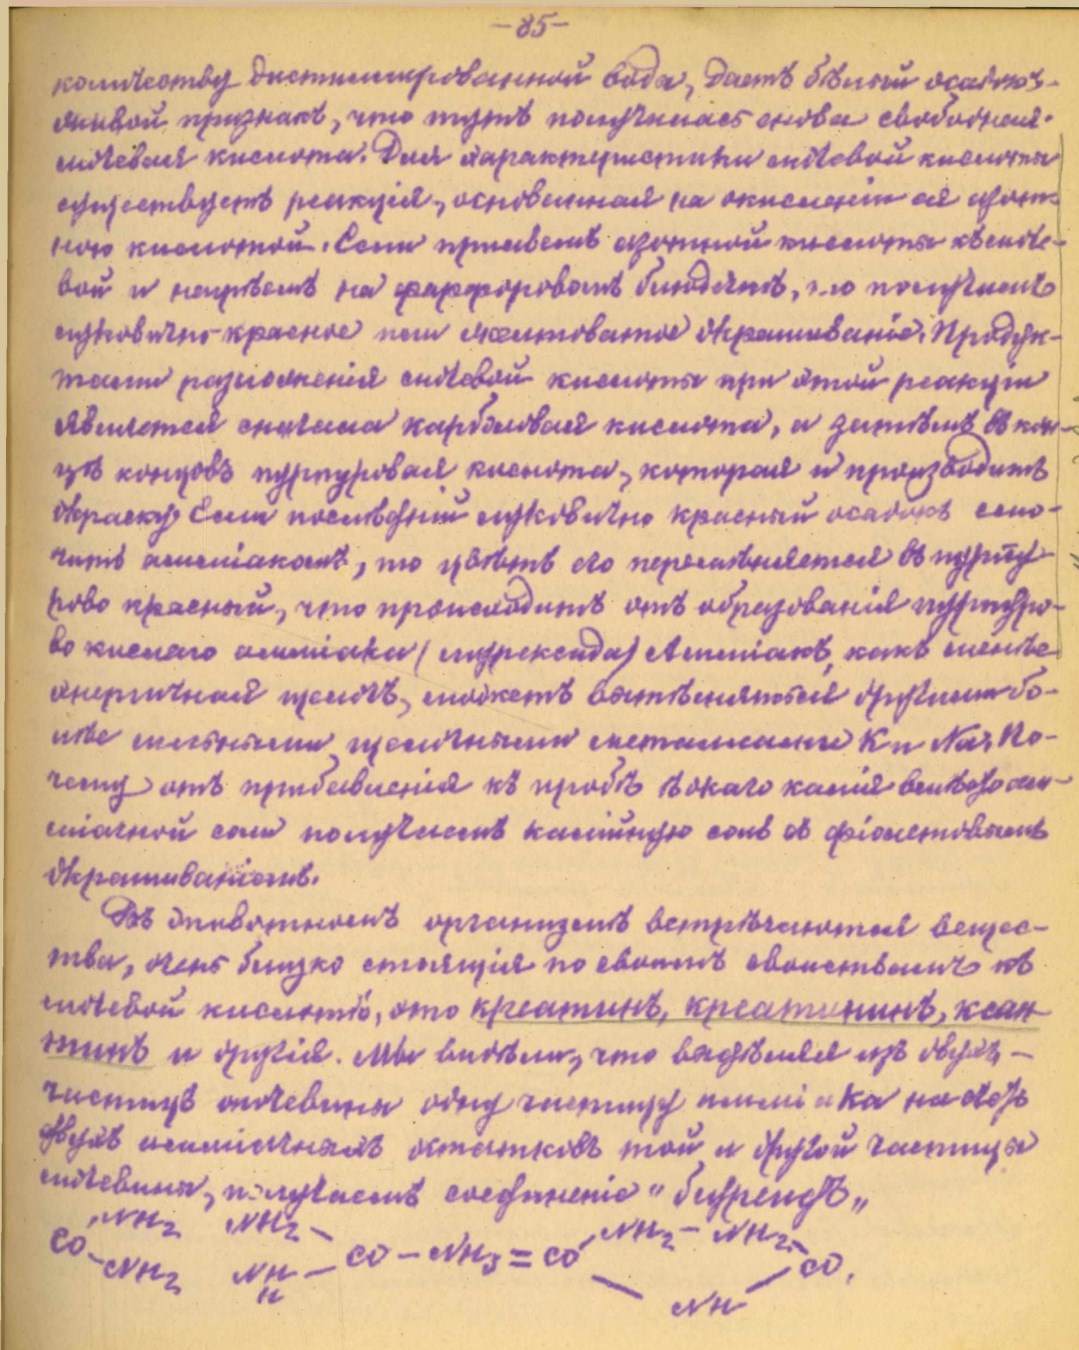 -85-
количеству дистиллированной вода, даетъ бѣлый осадокъ-
живой признакъ, что тутъ получилась снова свободная.
мочевая кислота. Для характеристики мочевой кислоты
существуетъ реакція, основанная на окисленіи ея азот-
ною кислотой. Если прильемъ азотной кислоты къ моче-
вой и нагрѣемъ на фарфоровомъ блюдечкѣ, то получимъ
луковично-красное или желтоватое окрашиваніе. Продук-
тами разложенія мочевой кислоты при этой реакціи
является сначала карболовая кислота, а затѣмъ въ кон-
цѣ концовъ пурпуровая кислота, которая и производитъ
окраску. Если послѣдній луковично красный осадокъ смо-
чить амміакомъ, то цвѣтъ его перемѣняется въ пурпу
рово красный, что происходитъ отъ образованія пурпуро-
во кислаго амміака (мурексида) Амміакъ, какъ менѣе
энергичная щелочь, можетъ вытѣсняться другими бо-
лѣе сильными щелочными металлами K и Na. По-
чему отъ прибавленія къ пробѣ ѣдкаго калія вмѣсто ам-
міачной соли получаемъ калійную соль съ фіолетовымъ
окрашиваніемъ.
Въ животномъ организмѣ встрѣчаются вещес-
тва, очень близко стоящія по своимъ свойствамъ къ
мочевой кислотѣ, это креатинъ, креатининъ, ксан
тинъ и другія. Мы видѣли, что выдѣляя изъ двухъ -
частицъ мочевины одну частицу амміака на счетъ
двухъ амміачныхъ остатковъ той и другой частицы
мочевины, получаемъ соединеніе "биуреидъ"
NH2 NH2 NH2 - NH2
CO CO - NH3 = CO CO.
NH2 NH
H NH